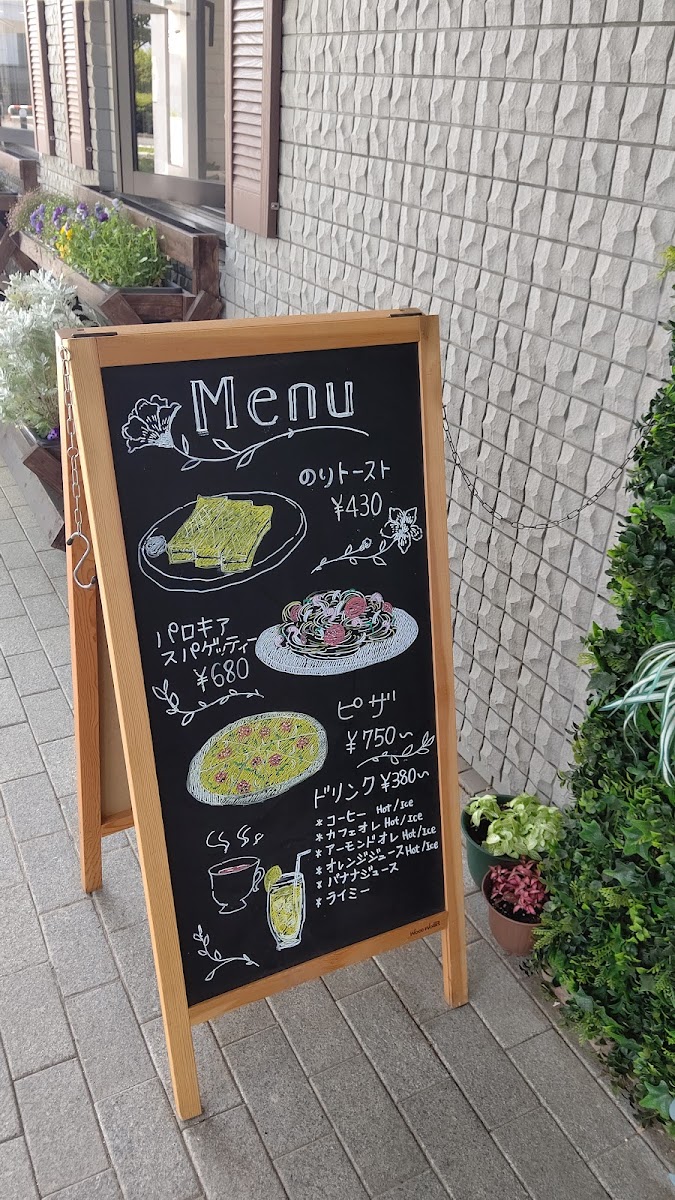 Menu
のりトースト
¥430
パロキア
スパゲッティー
¥680
ピザ
¥750〜
ドリンク ¥380〜
* コーヒー Hot/Ice
* カフェオレ Hot/Ice
* アーモンドオレ Hot/Ice
* オレンジジュース Hot/Ice
* バナナジュース
* ライミー